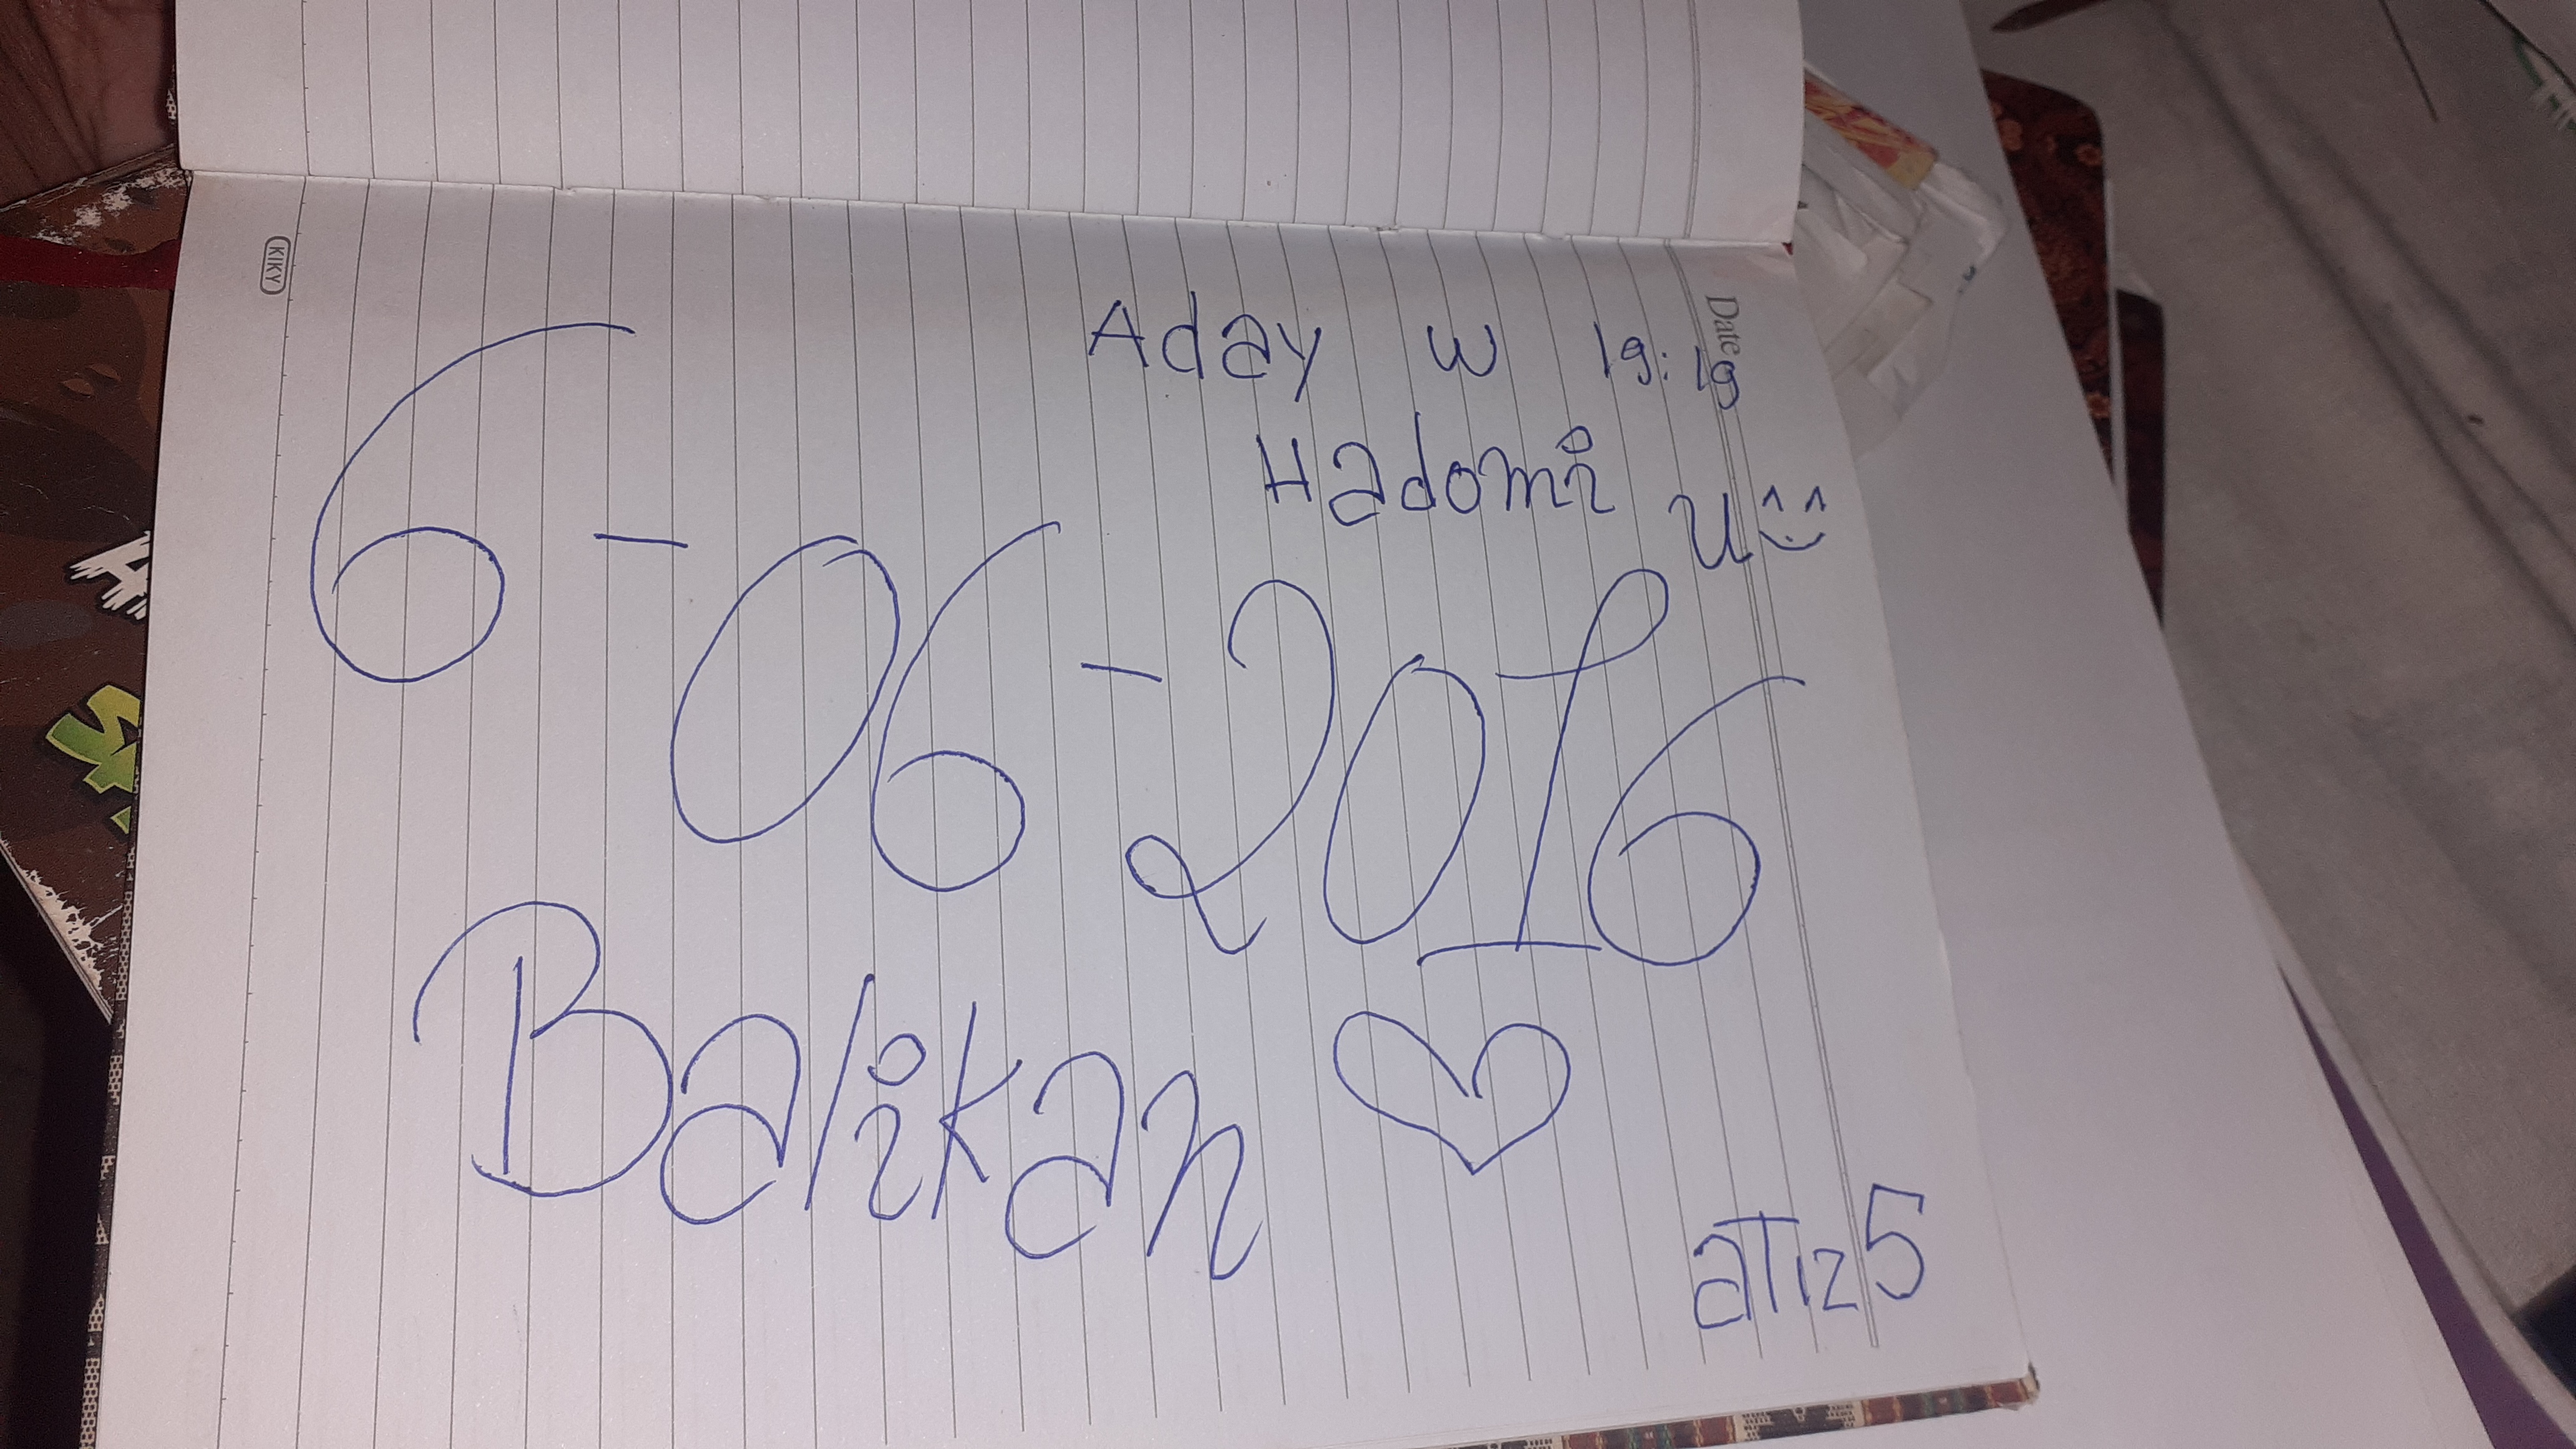 Date
KIKY
Aday w 19:19
Hadomi u
6-06-2016
Balikan
aTiz5